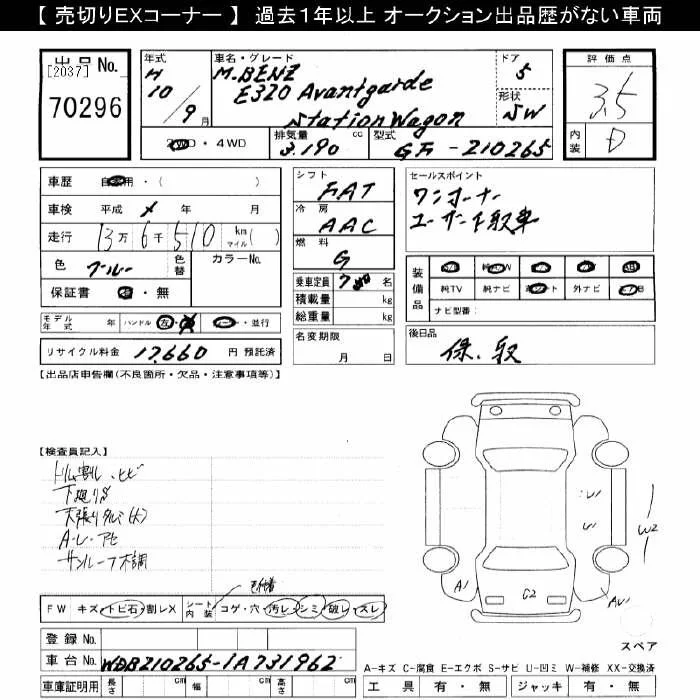 【 売切りEXコーナー 】 過去1年以上 オークション出品歴がない車両
出品 No.
[2037]
70296
年式
H
10/9月
車名・グレード
M.BENZ
E320 Avantgarde
Station Wagon
ドア
5
形状
SW
評価点
3.5
内装
D
2WD・4WD
排気量
3.190 cc
型式
GF-210265
車歴 自家用・( )
車検 平成 年 月
走行 13万6千510 km マイル( )
色 ブルー 色替
カラーNo.
保証書 有・無
モデル年式 年 ハンドル 左・右
・並行
リサイクル料金 17,660 円 預託済
シフト
FAT
冷房
AAC
燃料
G
乗車定員 7 名
積載量 kg
総重量 kg
名変期限
月 日
セールスポイント
ワンオーナー
ユーザー下取車
装備品
純TV 純ナビ 外ナビ
ナビ型番:
後日品
保、取
【出品店申告欄(不良箇所・欠品・注意事項等)】
【検査員記入】
トリム割レ、ヒビ
下廻りS
天張りタルミ(大)
A・レ・アセ
サンルーフ不調
FW キズ・トビ石・割レX
シート内装 コゲ・穴・汚レ・シミ・破レ・スレ
登録 No.
車台 No. WDB210265-1A731962
車庫証明用 長さ cm 幅 cm 高さ cm
U1
U1
W2
A1
G2
AU1
スペア
A-キズ C-腐食 E-エクボ S-サビ U-凹ミ W-補修 XX-交換済
工具 有・無 ジャッキ 有・無